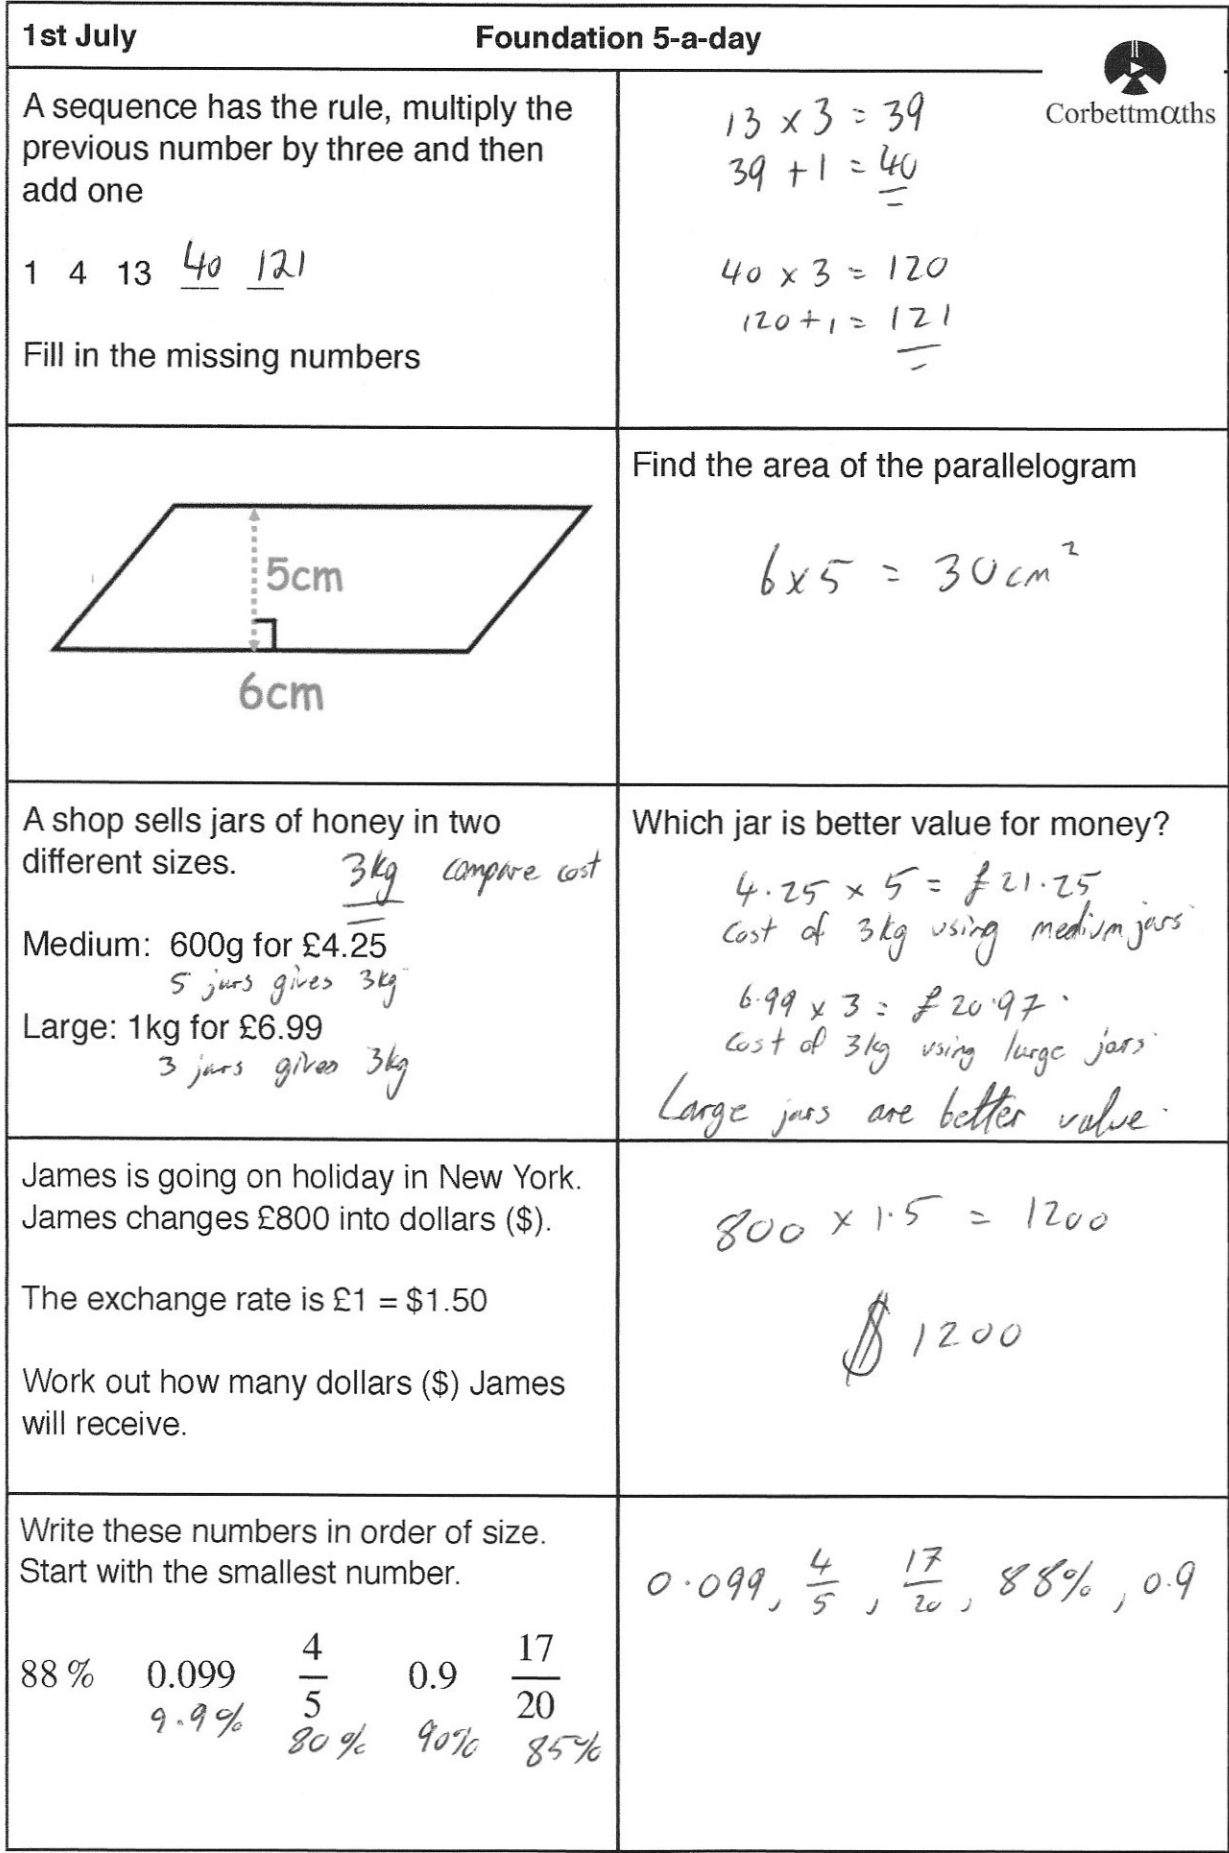 1st July
Foundation 5-a-day
Corbettmαths
A sequence has the rule, multiply the
previous number by three and then
add one
1 4 13 40 121
Fill in the missing numbers
13 × 3 = 39
39 + 1 = 40
40 × 3 = 120
120 + 1 = 121
5cm
6cm
Find the area of the parallelogram
6 × 5 = 30cm²
A shop sells jars of honey in two
different sizes.
3kg compare cost
Medium: 600g for £4.25
5 jars gives 3kg
Large: 1kg for £6.99
3 jars gives 3kg
Which jar is better value for money?
4.25 × 5 = £21.25
cost of 3kg using medium jars
6.99 × 3 = £20.97.
cost of 3kg using large jars.
Large jars are better value.
James is going on holiday in New York.
James changes £800 into dollars ($).
The exchange rate is £1 = $1.50
Work out how many dollars ($) James
will receive.
800 × 1.5 = 1200
$1200
Write these numbers in order of size.
Start with the smallest number.
88% 0.099 4/5 0.9 17/20
9.9% 80% 90% 85%
0.099, 4/5, 17/20, 88%, 0.9